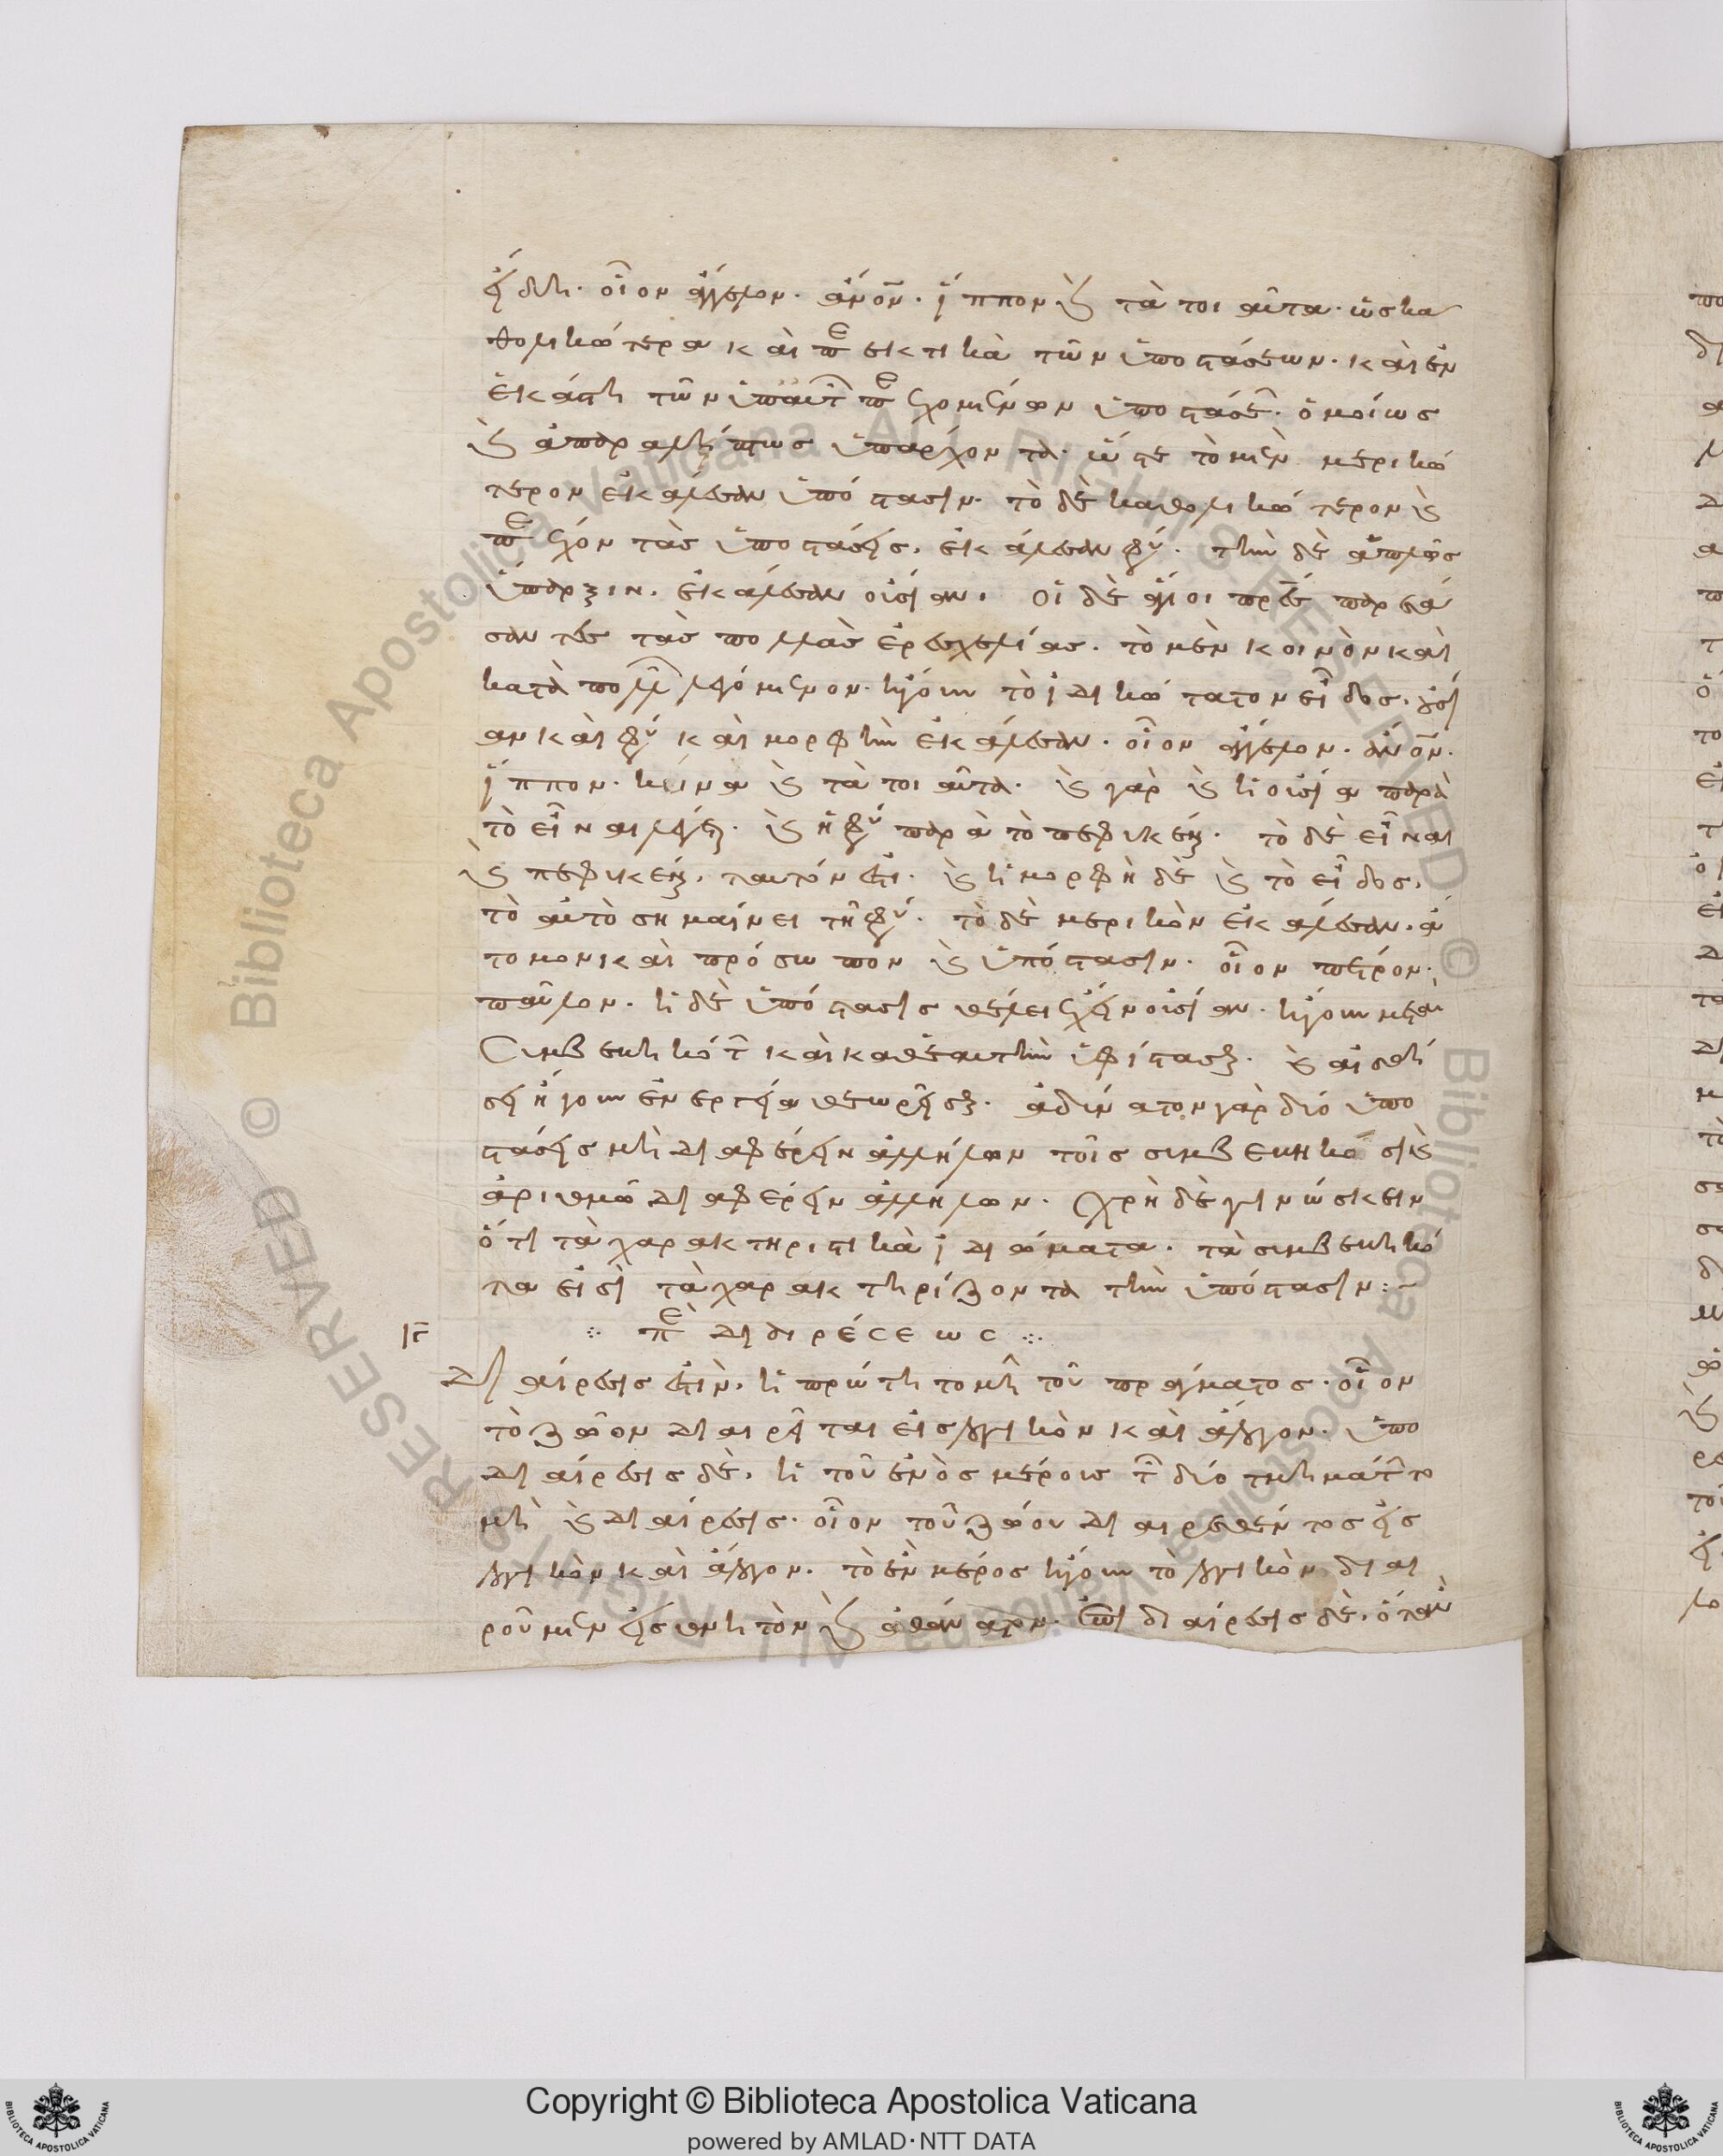 εἴδη· οἷον ἄγγελον· ἄνον̅· ἵππον καὶ τὰ τοιαῦτα· ὡς κα
θολικώτερα καὶ περιεκτικὰ τῶν ὑποστάσεων· καὶ ἐν
ἑκάστη τῶν ὑπ' αὐτ περιεχομένων ὑποστάσε· ὁμοίως
καὶ ἀπαραλείπτως ὑπάρχοντα· ὥστε τὸ μὲν μερικώ
τερον ἐκάλεσαν ὑπόστασιν· τὸ δὲ καθολικώτερον καὶ
περιέχον τὰς ὑποστάσεις, ἐκάλεσαν φύ· τὴν δὲ ἁπλῶς
ὕπαρξιν, ἐκάλεσαν οὐσίαν· οἱ δὲ ἅγιοι πρες̅ παρεά
σαντες τὰς πολλὰς ἐρεσχελίας· τὸ μὲν κοινὸν καὶ
κατὰ πολλ λεγόμενον· ἤγουν τὸ εἰδικώτατον εἶδος, οὐσί
αν καὶ φύ καὶ μορφὴν ἐκάλεσαν· οἷον ἄγγελον· ἄνον̅·
ἵππον· κύνα καὶ τὰ τοιαῦτα· καὶ γὰρ καὶ ἡ οὐσία παρὰ
τὸ εἶναι λέγεται· καὶ ἡ φύ παρὰ τὸ πεφυκέναι· τὸ δὲ εἶναι
καὶ πεφυκέναι, ταυτόν ἐστι· καὶ ἡ μορφὴ δὲ καὶ τὸ εἶδος,
τὸ αὐτὸ σημαίνει τῇ φύ· τὸ δὲ μερικὸν ἐκάλεσαν, ἄ
τομον καὶ πρόσωπον καὶ ὑπόστασιν· οἷον πέτρον·
παῦλον· ἡ δὲ ὑπόστασις θέλει ἔχειν οὐσίαν· ἤγουν μετὰ
συμβεβηκότ καὶ καθ' ἑαυτὴν ὑφίστασθαι· καὶ αἰσθή
σει ἤγουν ἐνεργεία θεωρεῖσθαι· ἀδύνατον γὰρ δύο ὑπο
στάσεις μὴ διαφέρειν ἀλλήλων τοῖς συμβεβηκόσι καὶ
ἀριθμῶ διαφέρειν ἀλλήλων· χρὴ δὲ γινώσκειν
ὅτι τὰ χαρακτηριστικὰ ἰδιώματα· τὰ συμβεβηκό
τα εἰσὶ τὰ χαρακτηρίζοντα τὴν ὑπόστασιν:~
ιϛ ⁘ περὶ διαιρέσεως ⁘
Διαίρεσις ἐστὶν, ἡ πρώτη τομὴ τοῦ πράγματος· οἷον
τὸ ζῶον διαιρεῖται εἰς λογικὸν καὶ ἄλογον· ὑπο
διαίρεσις δὲ, ἡ τοῦ ἑνὸς μέρους τ δύο τμημάτ το
μὴ καὶ διαίρεσις· οἷον τοῦ ζώου διαιρεθέντος εἰς
λογικὸν καὶ ἄλογον· τὸ ἓν μέρος ἤγουν τὸ λογικὸν διαι
ροῦμεν εἰς θνητὸν καὶ ἀθάνατον· ἐπιδιαίρεσις δὲ, ὅταν